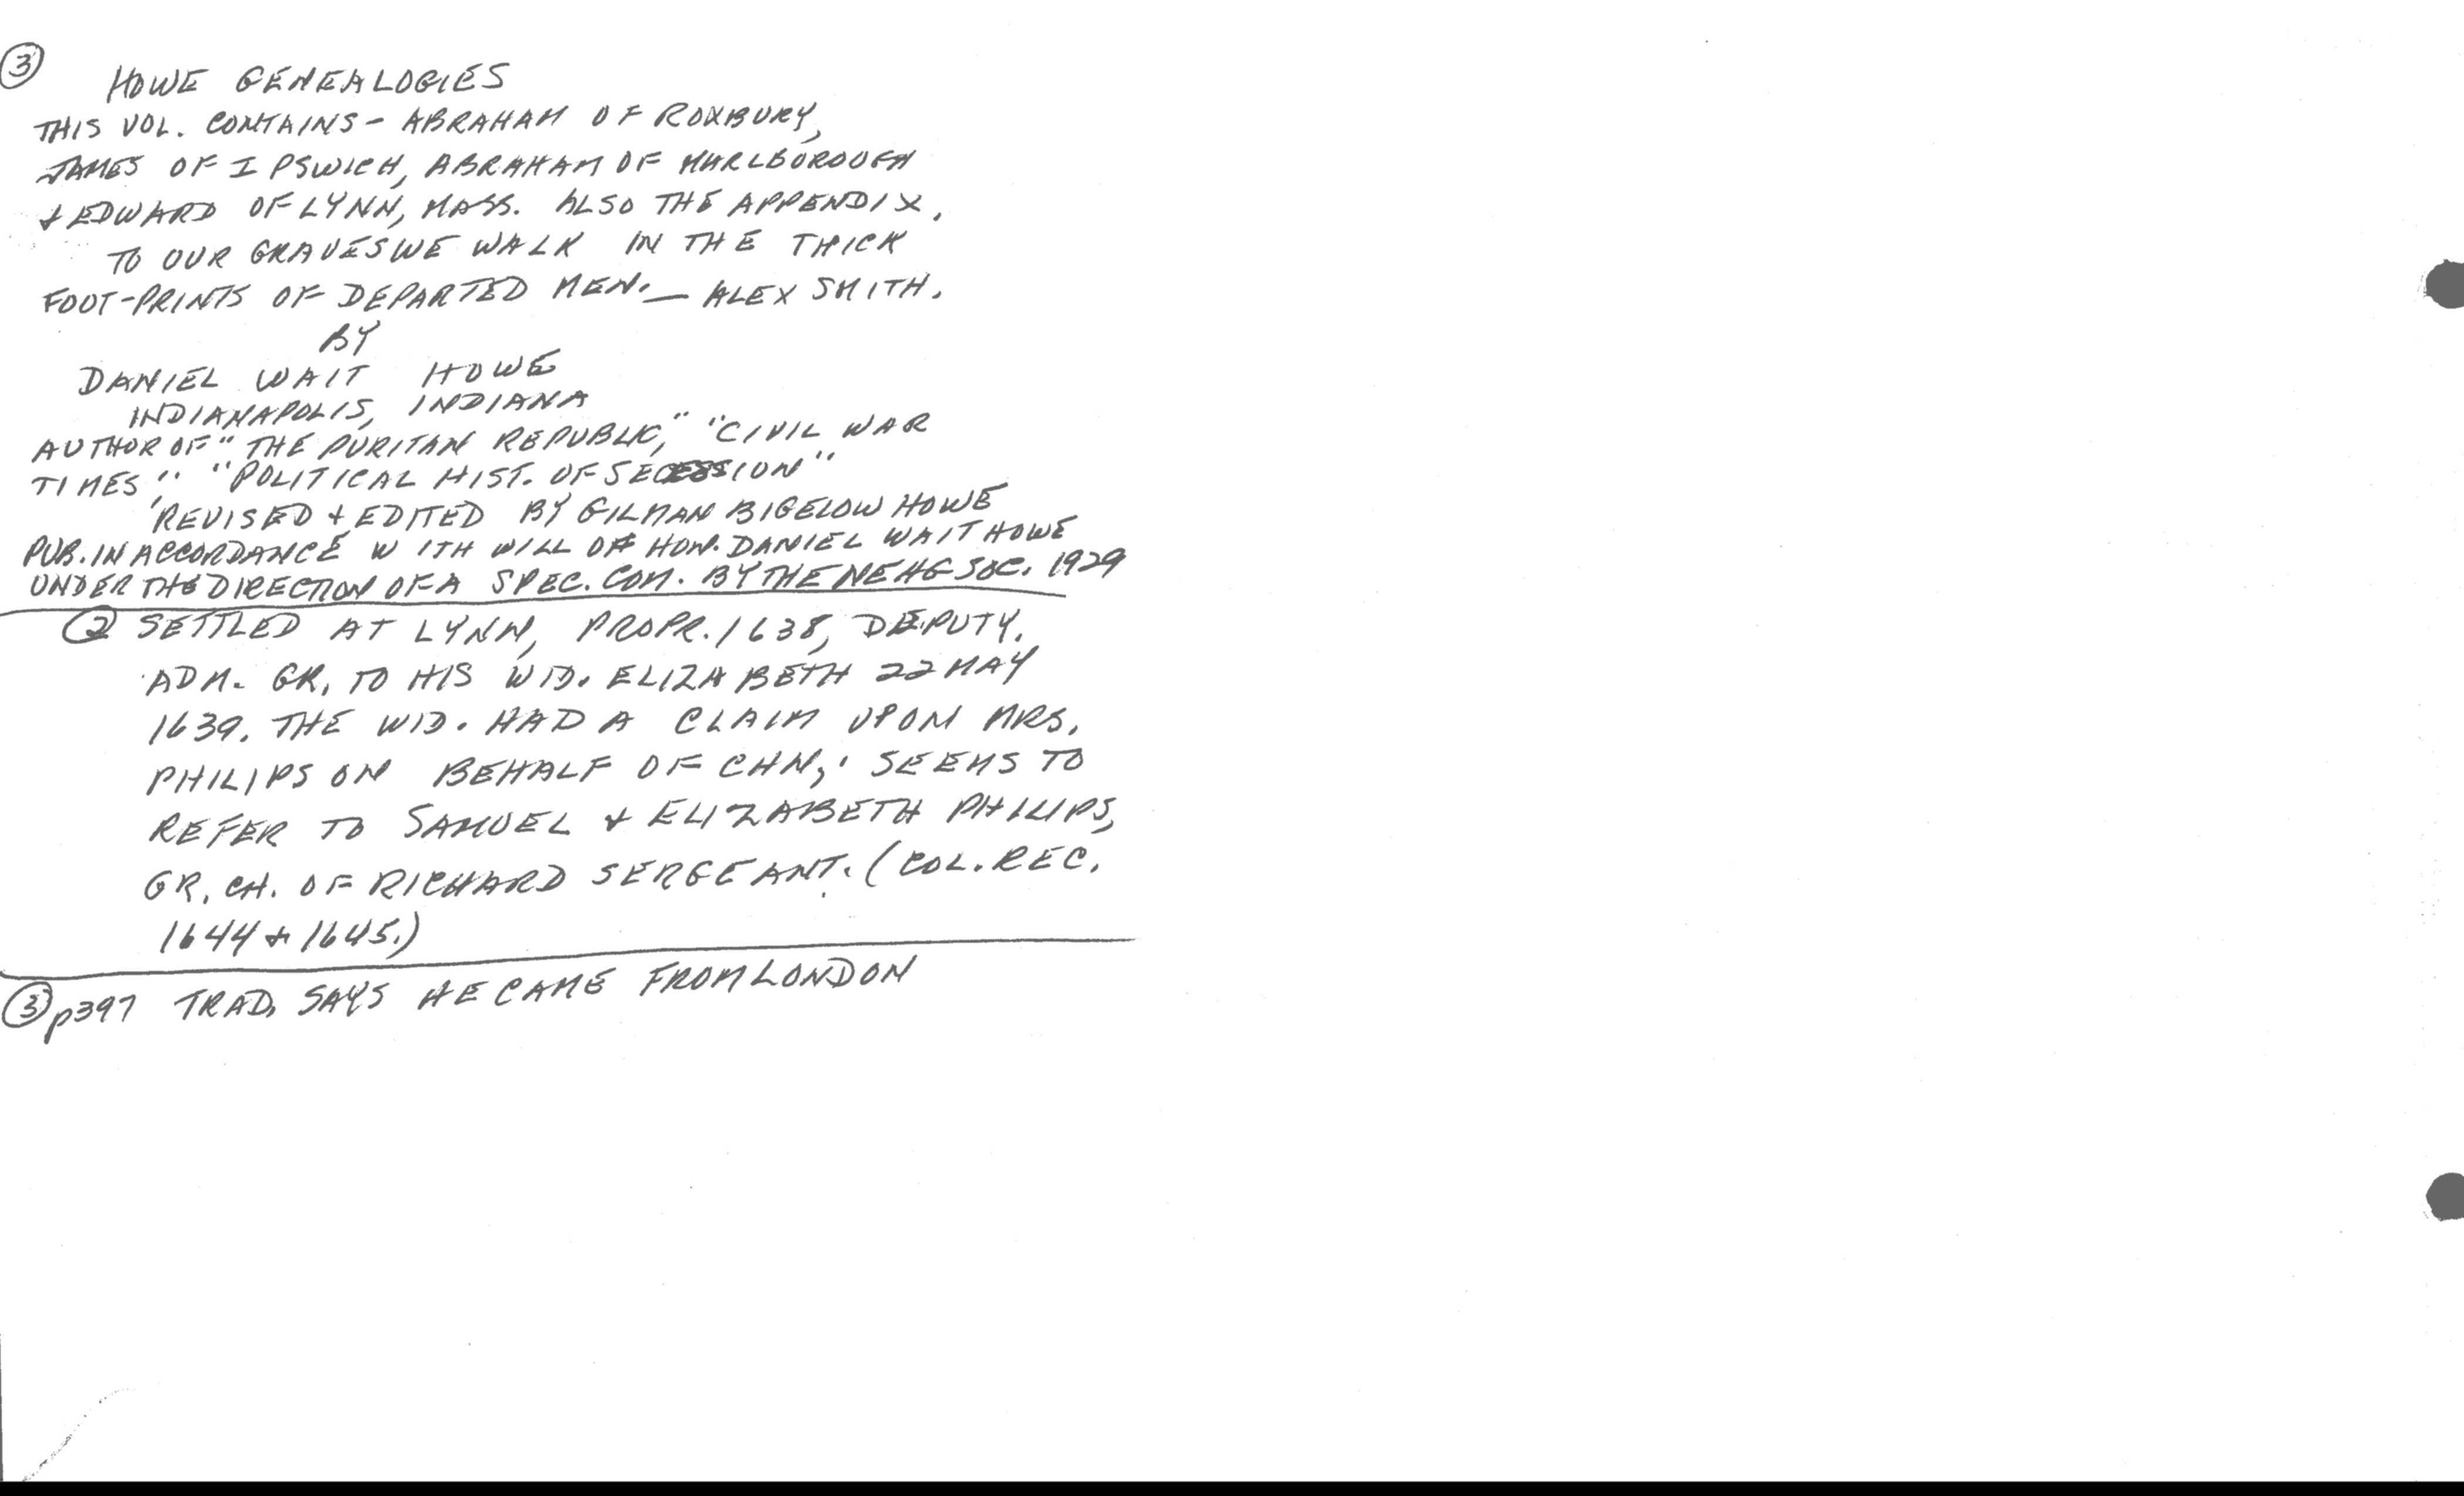 ③ HOWE GENEALOGIES
THIS VOL. CONTAINS - ABRAHAM OF ROXBURY,
JAMES OF IPSWICH, ABRAHAM OF MARLBOROUGH
& EDWARD OF LYNN, MASS. ALSO THE APPENDIX.
TO OUR GRAVES WE WALK IN THE THICK
FOOT-PRINTS OF DEPARTED MEN. — ALEX SMITH.
BY
DANIEL WAIT HOWE
INDIANAPOLIS, INDIANA
AUTHOR OF "THE PURITAN REPUBLIC," "CIVIL WAR
TIMES," "POLITICAL HIST. OF SECESSION"
REVISED & EDITED BY GILMAN BIGELOW HOWE
PUB. IN ACCORDANCE WITH WILL OF HON. DANIEL WAIT HOWE
UNDER THE DIRECTION OF A SPEC. COM. BY THE NEHG SOC. 1929
② SETTLED AT LYNN, PROPR. 1638, DEPUTY.
ADM. GR. TO HIS WID. ELIZABETH 22 MAY
1639. THE WID. HAD A CLAIM UPON MRS.
PHILIPS ON BEHALF OF CHN; SEEMS TO
REFER TO SAMUEL & ELIZABETH PHILIPS,
GR. CH. OF RICHARD SERGEANT. (COL. REC.
1644 & 1645.)
③ p397 TRAD. SAYS HE CAME FROM LONDON